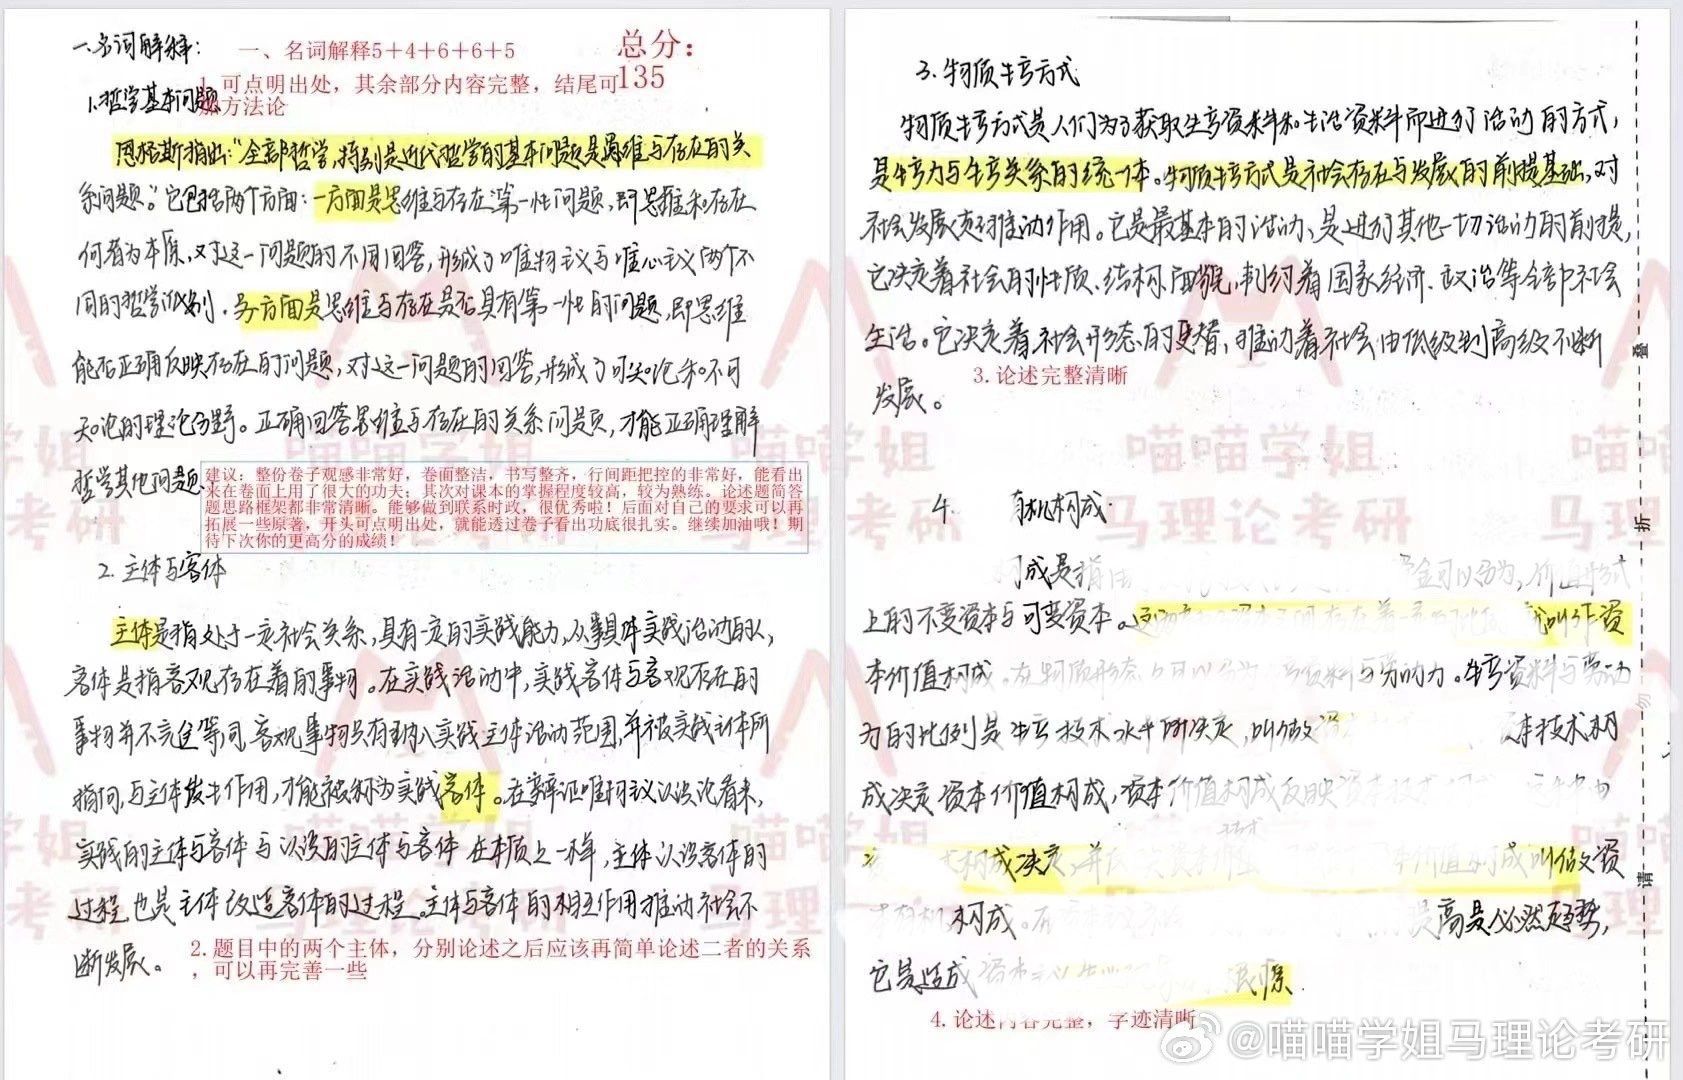 一.名词解释:
一、名词解释5+4+6+6+5
总分:
135
1.可点明出处，其余部分内容完整，结尾可
加方法论
1.哲学基本问题
恩格斯指出:“全部哲学,特别是近代哲学的基本问题是思维与存在的关
系问题。”它包括两个方面:一方面是思维与存在第一性问题,即思维和存在
何者为本原,对这一问题的不同回答,形成了唯物主义与唯心主义两个不
同的哲学派别。另一方面是思维与存在是否具有第一性的问题,即思维
能否正确反映存在的问题,对这一问题的回答,形成了可知论和不可
知论的理论分野。正确回答思维与存在的关系问题,才能正确理解
哲学其他问题
建议：整份卷子观感非常好，卷面整洁，书写整齐，行间距把控的非常好，能看出
来在卷面上用了很大的功夫；其次对课本的掌握程度较高，较为熟练。论述题简答
题思路框架都非常清晰。能够做到联系时政，很优秀啦！后面对自己的要求可以再
拓展一些原著，开头可点明出处，就能透过卷子看出功底很扎实。继续加油哦！期
待下次你的更高分的成绩！
2.主体与客体
主体是指处于一定社会关系,具有一定的实践能力,从事具体实践活动的人,
客体是指客观存在着的事物。在实践活动中,实践客体与客观存在的
事物并不完全等同,客观事物只有纳入实践主体活动范围,并被实践主体所
指向,与主体发生作用,才能被称为实践客体。在辩证唯物主义认识论看来,
实践的主体与客体与认识的主体与客体在本质上一样,主体认识客体的
过程也是主体改造客体的过程。主体与客体的相互作用推动社会不
断发展。
2.题目中的两个主体，分别论述之后应该再简单论述二者的关系
，可以再完善一些
3.物质生产方式
物质生产方式是人们为了获取生产资料和生活资料而进行活动的方式,
是生产力与生产关系的统一体。物质生产方式是社会存在与发展的前提基础,对
社会发展起推动作用。它是最基本的活动,是进行其他一切活动的前提,
它决定着社会的性质、结构、面貌,制约着国家经济、政治等全部社会
生活。它决定着社会形态的更替,推动着社会由低级到高级不断
发展。
3.论述完整清晰
4. 有机构成.
构成是指 可以分为,价值形式
上的不变资本与可变资本。 就叫作资
本价值构成。在物质形态上可以分为 资料与劳动力。生产资料与劳动
力的比例是生产技术水平所决定,叫做 本技术构
成决定资本价值构成,资本价值构成反映资本技术
构成决定,并 价值构成叫做资
有机构成。 提高是必然趋势,
它是造成
4.论述内容完整，字迹清晰
喵喵学姐
马理论考研
叠
折
勿
请
@喵喵学姐马理论考研